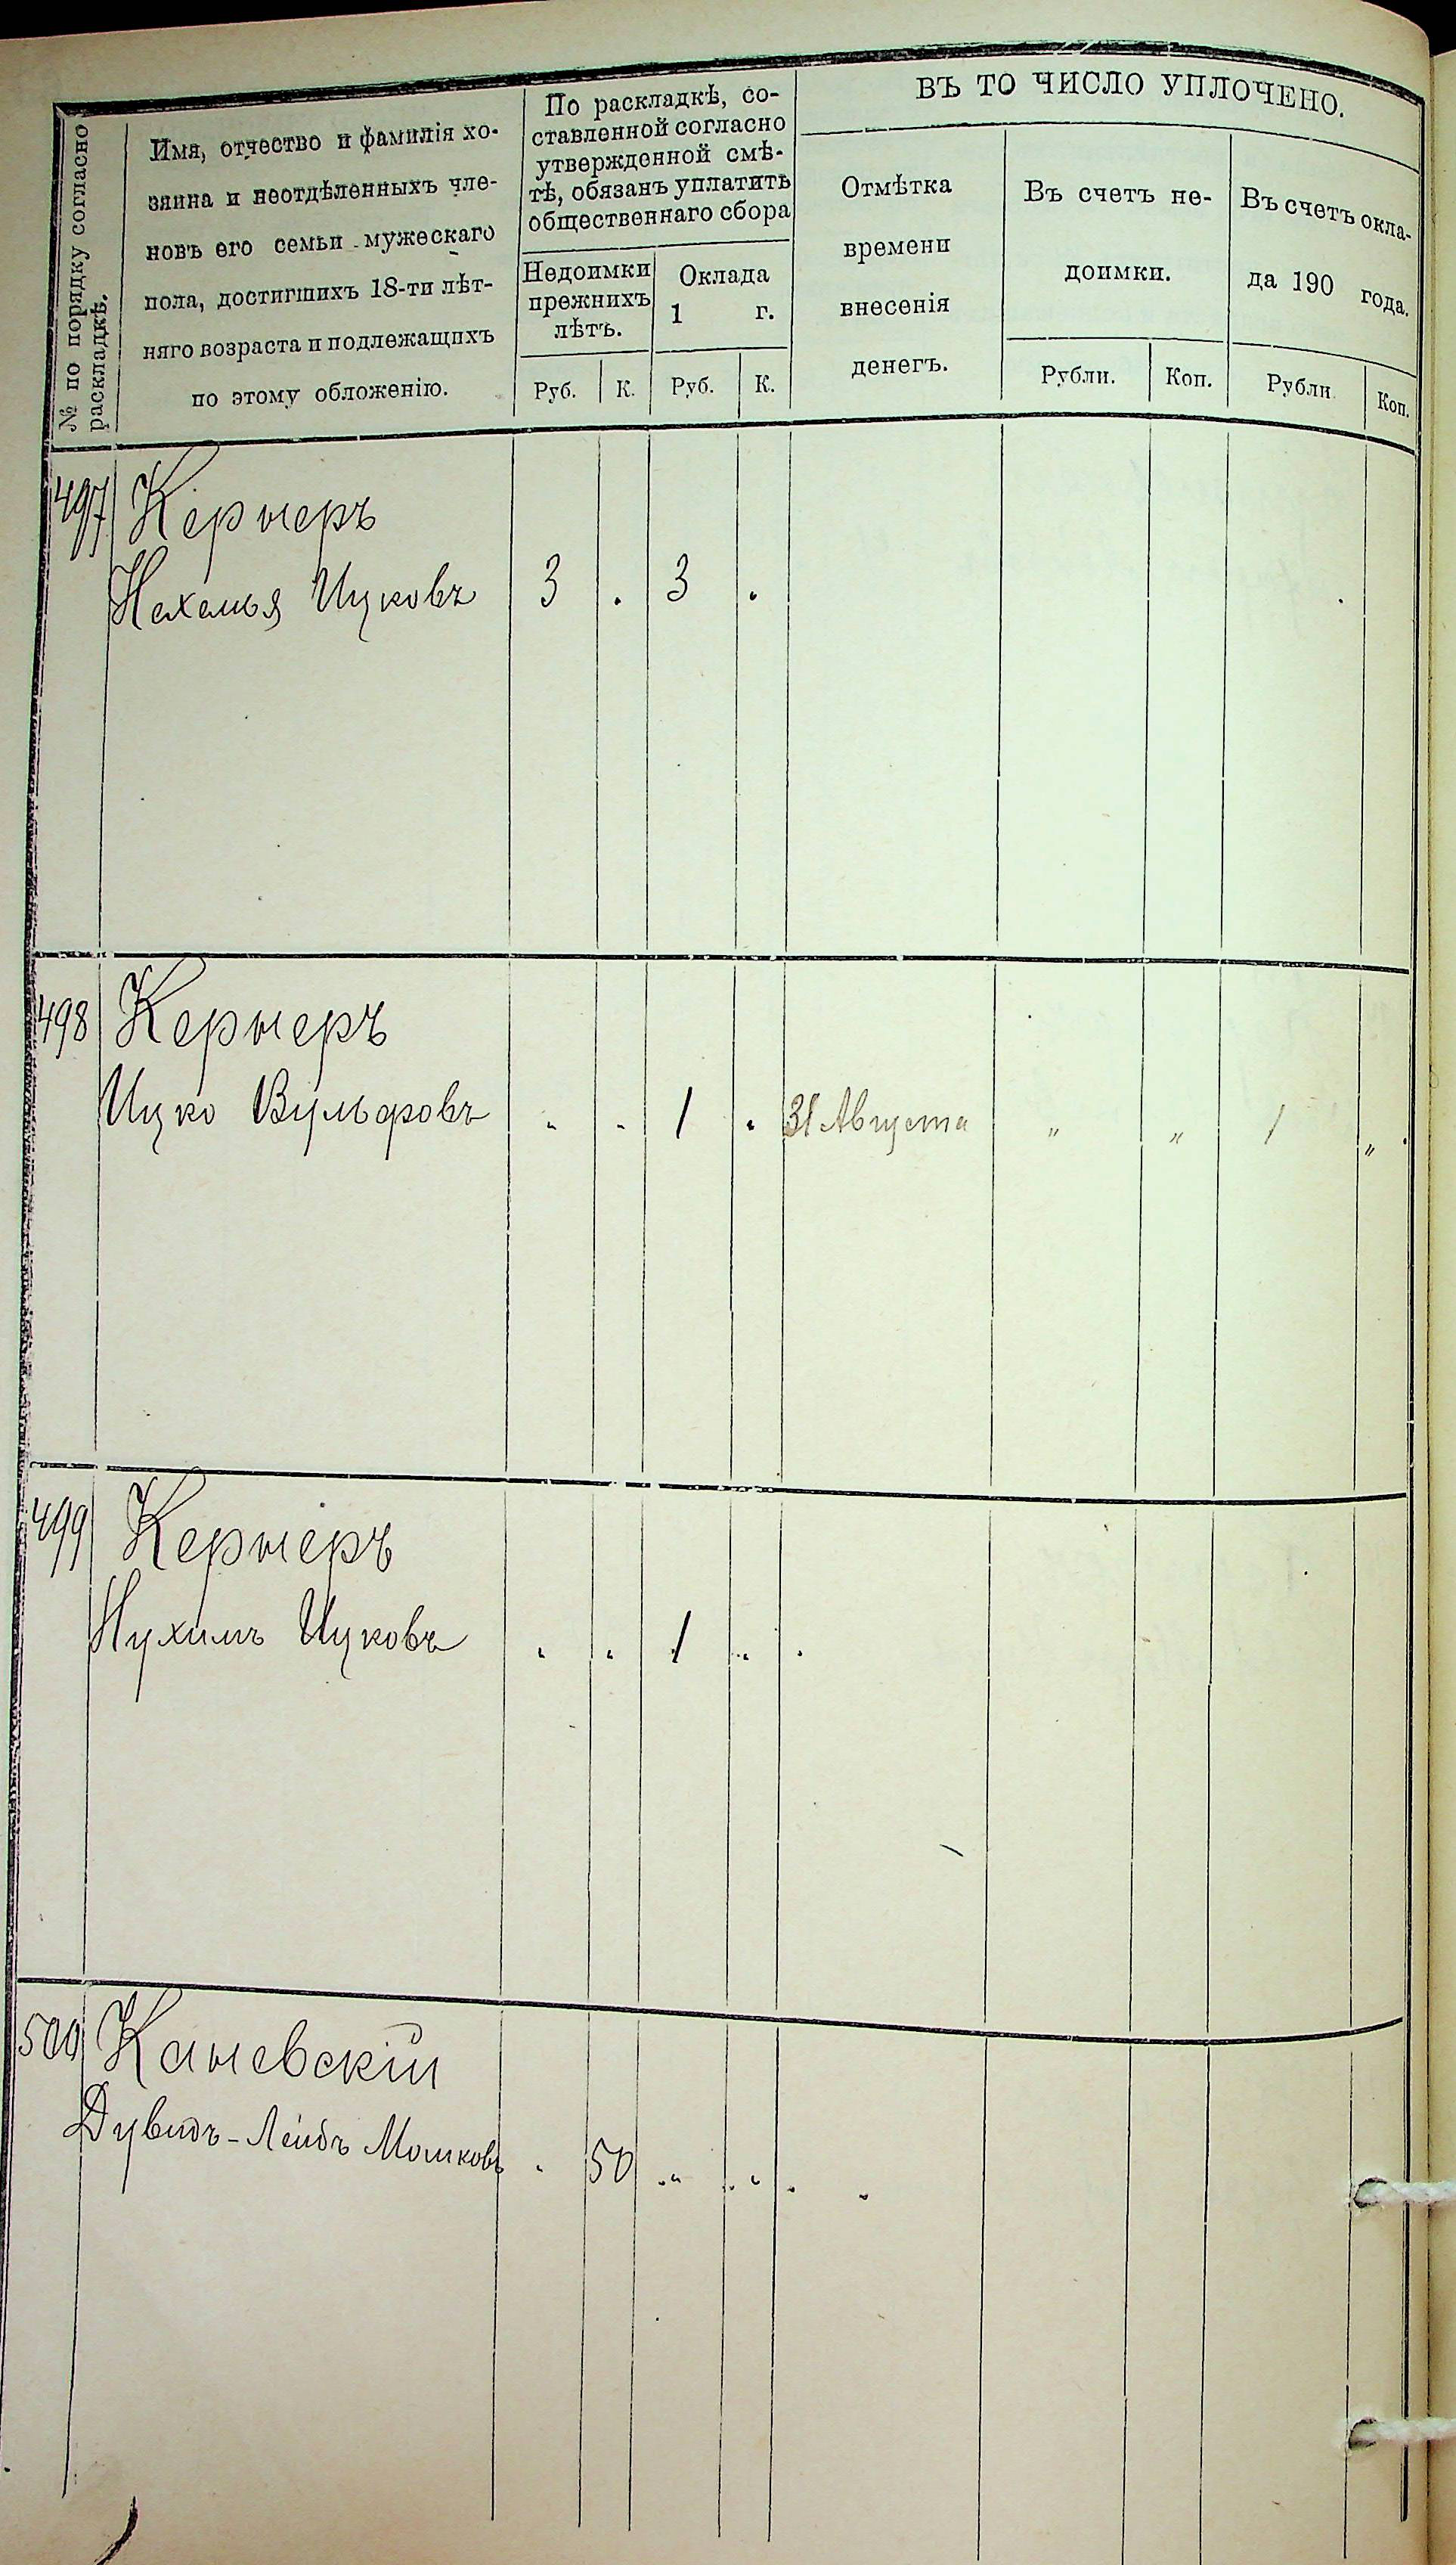 № по порядку согласно
раскладкѣ.
Имя, отчество и фамилія хо-
зяина и неотдѣленныхъ чле-
новъ его семьи мужескаго
пола, достигшихъ 18-ти лѣт-
няго возраста и подлежащихъ
по этому обложенію.
По раскладкѣ, со-
ставленной согласно
утвержденной смѣ-
тѣ, обязанъ уплатить
общественнаго сбора
Недоимки
прежнихъ
лѣтъ.
Оклада
1 г.
Руб. К. Руб. К.
ВЪ ТО ЧИСЛО УПЛОЧЕНО.
Отмѣтка
времени
внесенія
денегъ.
Въ счетъ не-
доимки.
Рубли. Коп.
Въ счетъ окла-
да 190 года.
Рубли Коп.
497 Кернеръ
Нехемья Ицковъ 3 . 3 .
498 Кернеръ
Ицко Вульфовъ " " 1 " 31 Августа " " 1 "
499 Кернеръ
Нухимъ Ицковъ " " 1 "
500 Каневскій
Дувидъ-Лейбъ Мошковъ " 50 " "